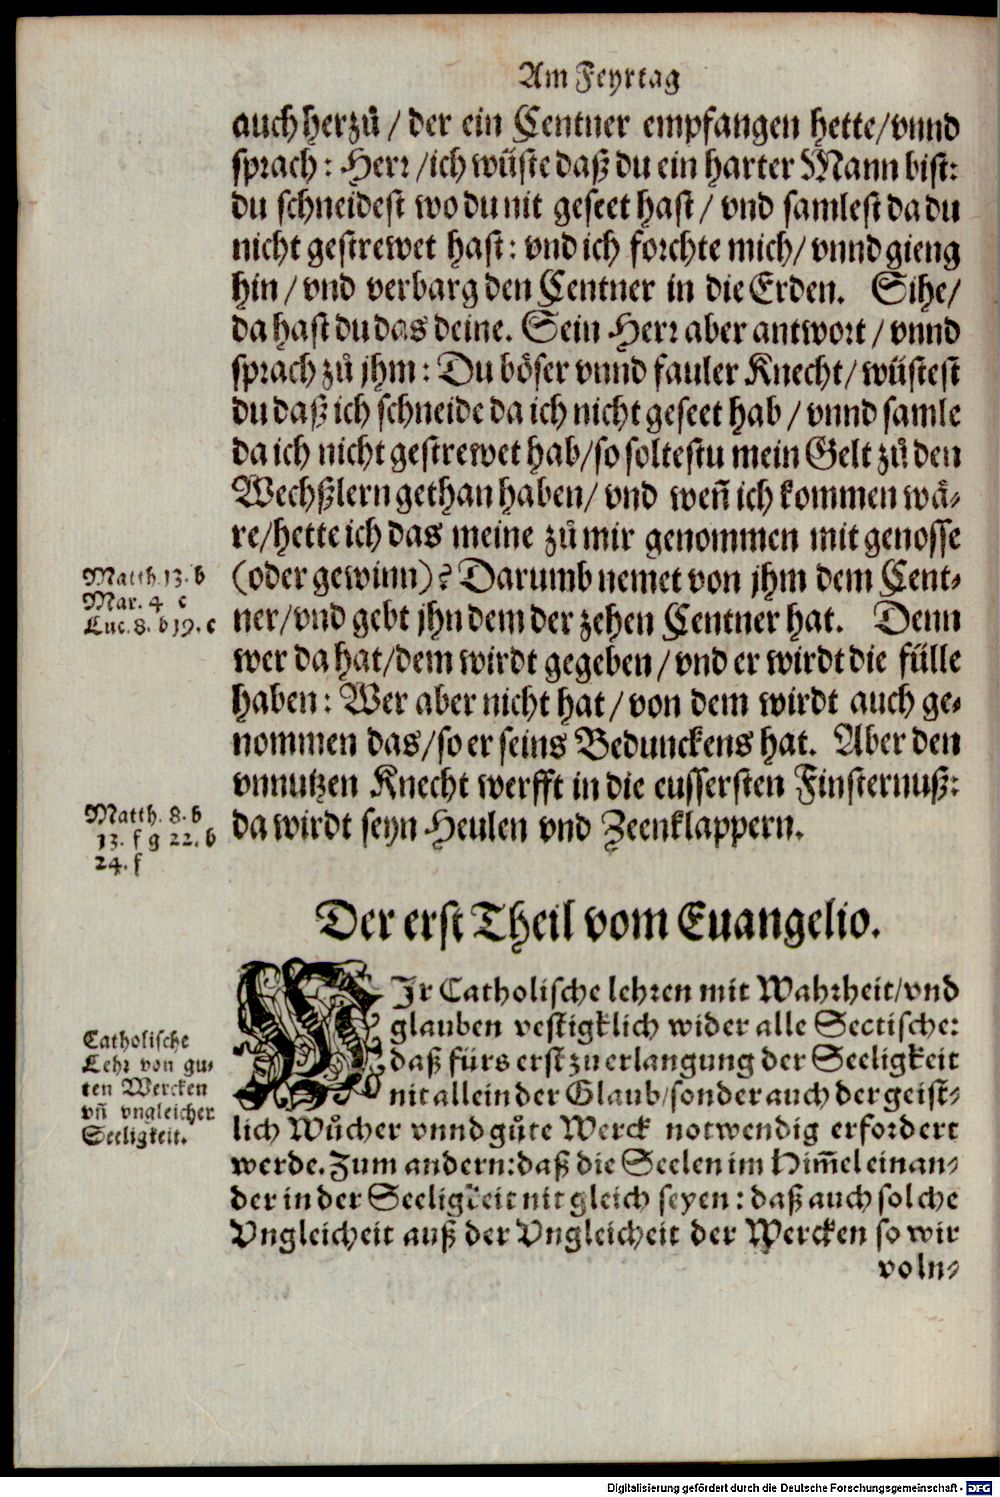 Am Feyrtag
auch herzů / der ein Centner empfangen hette/vnnd
sprach: Herr /ich wüste daß du ein harter Mann bist:
du schneidest wo du nit geseet hast / vnd samlest da du
nicht gestrewet hast: vnd ich forchte mich/ vnnd gieng
hin / vnd verbarg den Centner in die Erden. Sihe/
da hast du das deine. Sein Herr aber antwort / vnnd
sprach zů jhm: Du böser vnnd fauler Knecht/ wüstest
du daß ich schneide da ich nicht geseet hab / vnnd samle
da ich nicht gestrewet hab/so soltestu mein Gelt zů den
Wechßlern gethan haben/ vnd weñ ich kommen wä-
re/hette ich das meine zů mir genommen mit genosse
Matth. 13. b
Mar. 4 c
Luc. 8. b 19. c
(oder gewinn)? Darumb nemet von jhm dem Cent-
ner/vnd gebt jhn dem der zehen Centner hat. Denn
wer da hat/dem wirdt gegeben / vnd er wirdt die fülle
haben: Wer aber nicht hat / von dem wirdt auch ge-
nommen das/so er seins Bedunckens hat. Aber den
vnnutzen Knecht werfft in die eussersten Finsternuß:
da wirdt seyn Heulen vnd Zeenklappern.
Matth. 8. b
13. f g 22. b
24. f
Der erst Theil vom Euangelio.
WIr Catholische lehren mit Wahrheit/vnd
glauben vestigklich wider alle Sectische:
daß fürs erst zu erlangung der Seeligkeit
nit allein der Glaub/sonder auch der geist-
lich Wůcher vnnd gůte Werck notwendig erfordert
werde. Zum andern: daß die Seelen im Him̃el einan-
der in der Seeligkeit nit gleich seyen: daß auch solche
Vngleicheit auß der Vngleicheit der Wercken so wir
voln-
Catholische
Lehr von gu-
ten Wercken
vñ vngleicher
Seeligkeit.
Digitalisierung gefördert durch die Deutsche Forschungsgemeinschaft - DFG